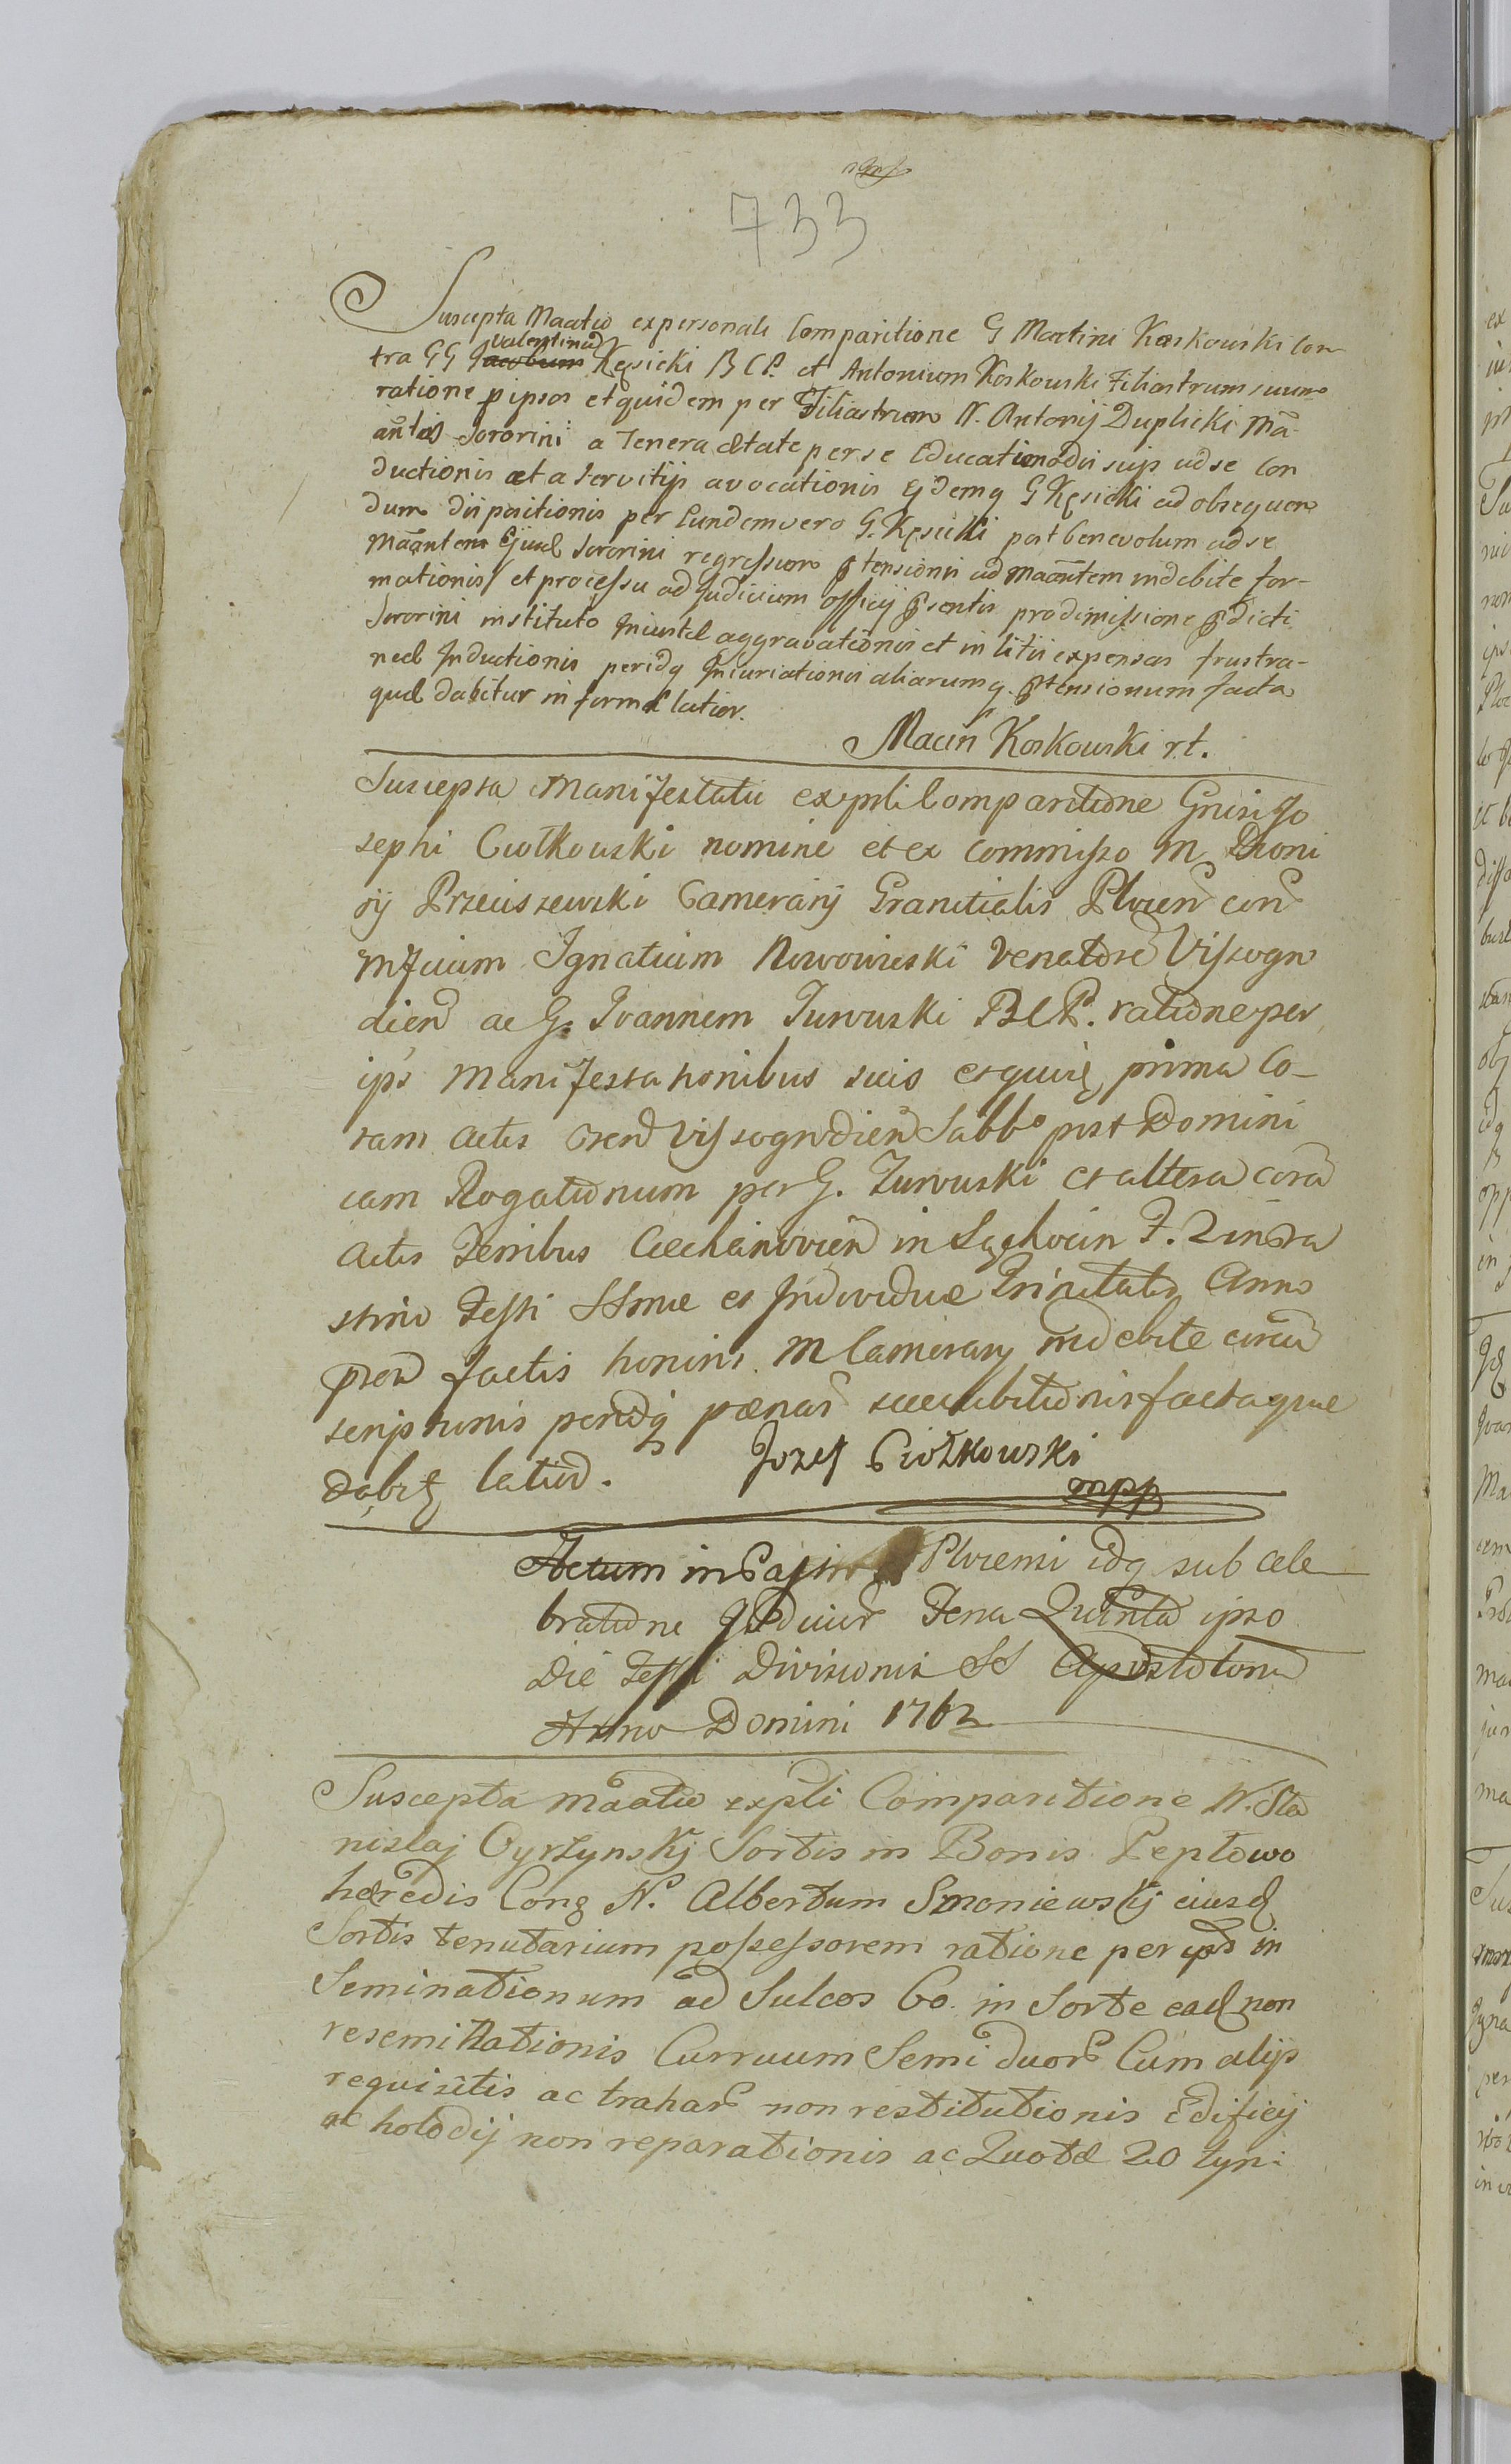 733
Suscepta Maatio ex personali Comparitione G Martini Koskowski Con
tra GG Jacobum Valentinu Kęsicki B C P. et Antonium Koskowski Filiastrum suum
ratione p ipsos et quidem per Filiastrum N. Antonij Duplicki Ma
antis Sororini a Tenera ætate per se Educati ad se Con
ductionis et a Servitijs avocationis Ejdemq G Kęsicki ad obsequen
dum dispositionis per Eundem vero G. Kęsicki post benevolum ad se
Maantem Ejusd Sororini regressum ptensionis ad Maantem indebite for-
mationis et processu ad Judicium officij psentis pro dimissione pdicti
Sororini instituto Iniustæ aggravationis et in litis expensas frustra-
neæ Inductionis peridq Iniuriationis aliarumq. ptensionum facta
quæ dabitur in forma latior.
Macin Koskowski r.t.
Suscepta Manifestatio ex psli Comparitione Gnsi Jo
sephi Ciołkowski nomine et ex commisso M Dioni
sij Przeciszewski Camerarij Granitialis Plocen con
Mfcum Ignatium Nowowieski Venatore Vissogro
dien ac G. Joannem Turowski B C P. ratione per
ips Manifestationibus suis et quidę prima Co-
ram Actis Visogrodien Sabbo post Domini
cam Rogationum per G. Turowski et altera corā
Actis Terribus Ciechanovien in Sąchocin F. 2 in Cra
stino Festi SSmæ et Individuæ Trinitatis Anno
pten factis honoris M Camerarij indebite circū
scriptionis peridq pœnar succubitionis facta quæ
dabitę latior. Jozef Ciołkowski
mpp
Actum in Plocensi idq sub cele
bratione Judicior Feria Quinta ipso
Die Festi Divisionis SS Apostolorum
Anno Domini 1762
Suscepta Maatio ex psli Comparitione N. Sta
nislaj Gyrzynskj Sortis in Bonis Peplowo
hæredis Con N. Albertum Smoniewskij eiusd
Sortis tenutarium possessorem ratione per ips in
Seminationum ad Sulcos 60. in Sorte ead non
reseminationis Curruum Semi duor Cum alijs
requisitis ac trahar non restitutionis Edificij
ac holodij non reparationis ac Quotæ 20 tyn: